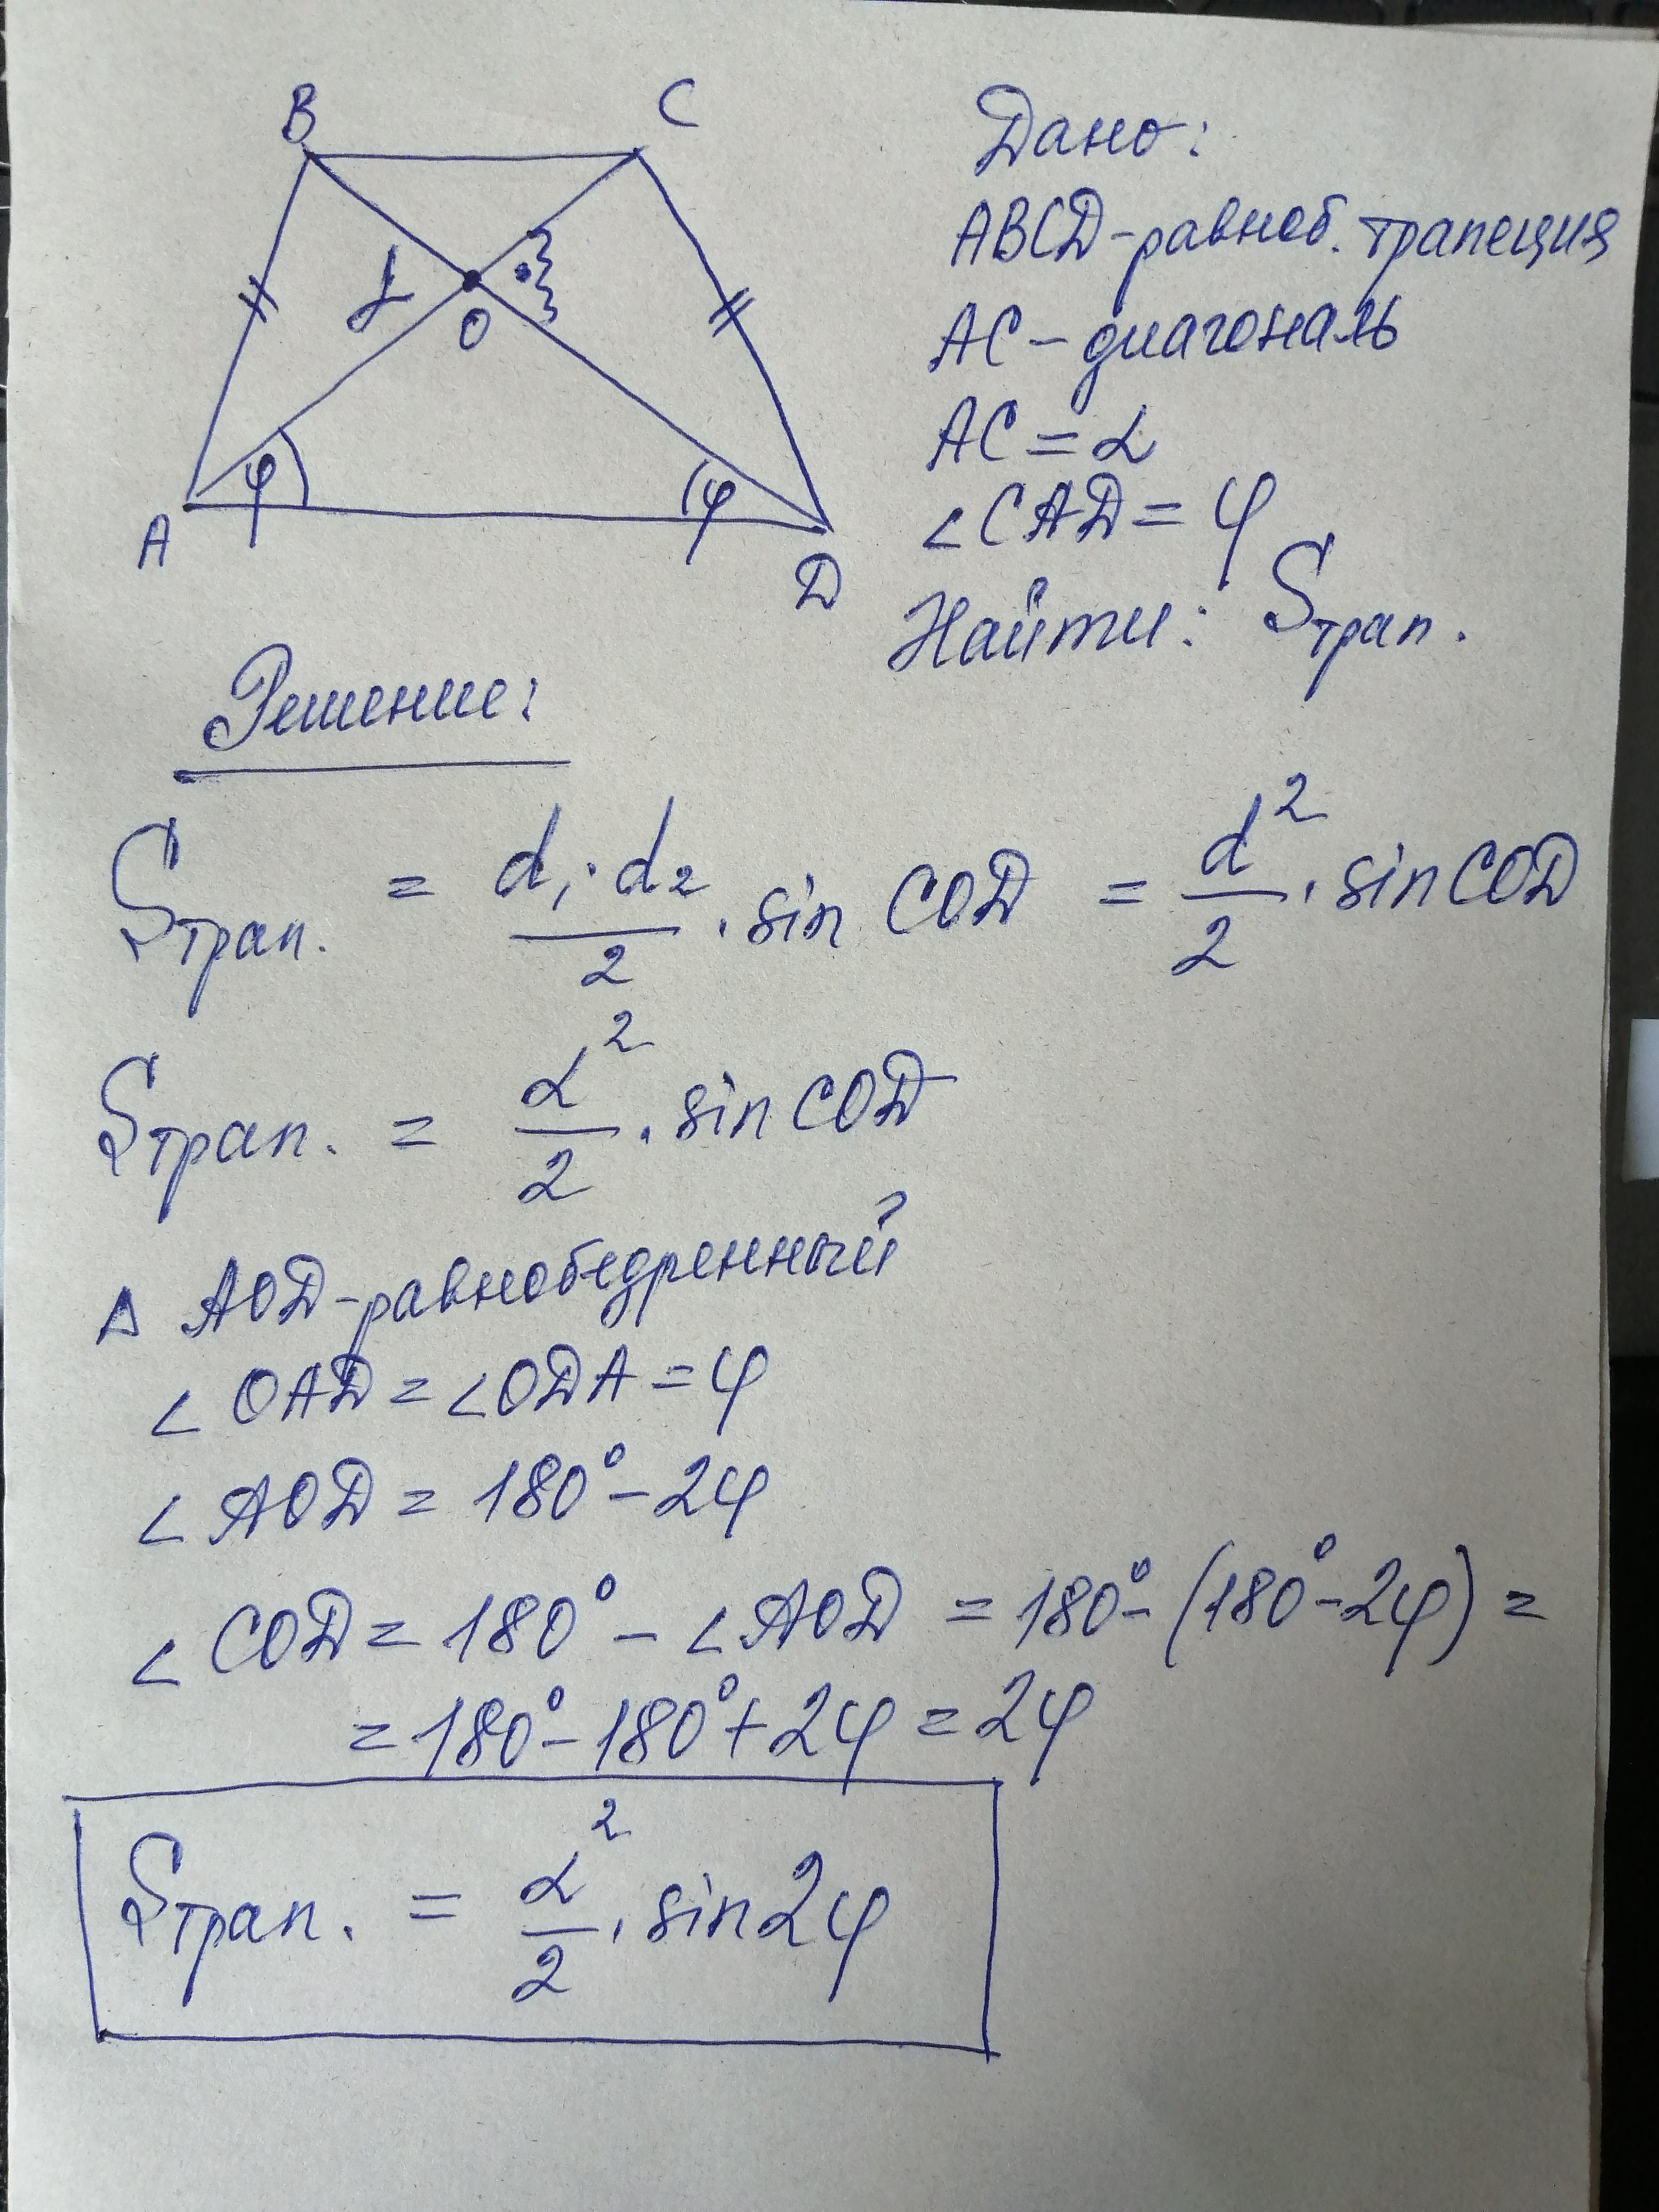 B C
α
O
φ φ
A D
Дано:
ABCD-равноб. трапеция
AC - диагональ
AC = α
∠CAD = φ
Найти: Sтрап.
Решение:
Sтрап. = d₁·d₂/2 · sin COD = d²/2 · sin COD
Sтрап. = α²/2 · sin COD
Δ AOD-равнобедренный
∠OAD = ∠ODA = φ
∠AOD = 180° - 2φ
∠COD = 180° - ∠AOD = 180° - (180° - 2φ) =
= 180° - 180° + 2φ = 2φ
Sтрап. = α²/2 · sin2φ